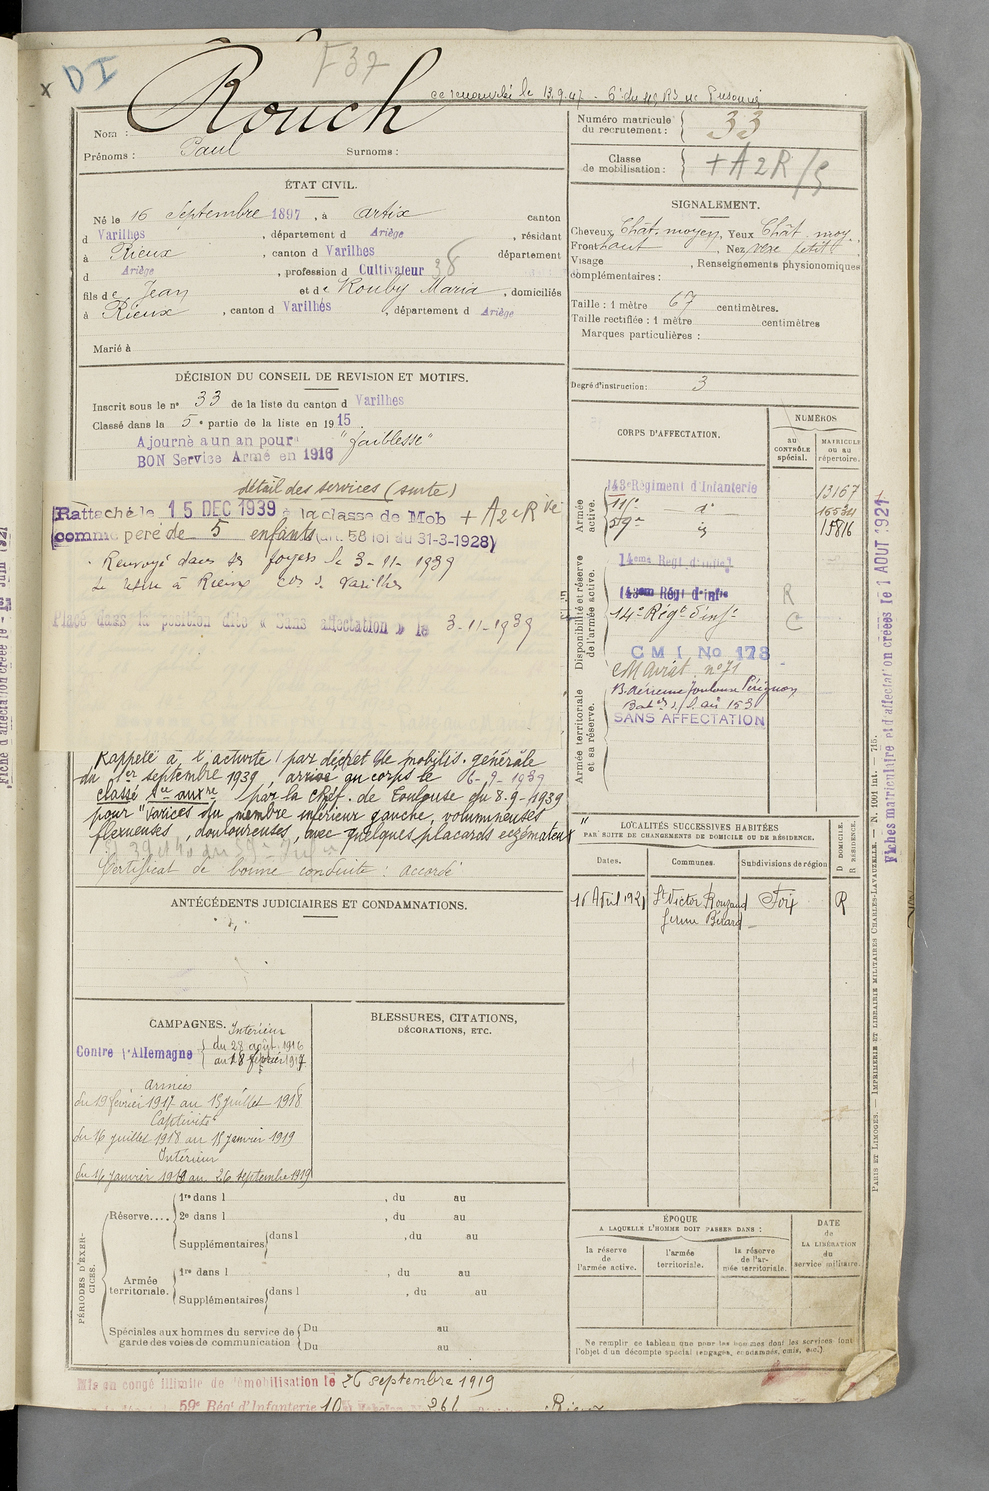 D I
F 37
Rouch
ce renouvelé le 13.9.47
Nom :
Prénoms : Paul Surnoms :
Numéro matricule du recrutement : 33
Classe de mobilisation : + A 2 R / 5
ÉTAT CIVIL.
Né le 16 Septembre 1897, à Artix canton
d Varilhes, département d Ariège, résidant
à Rieux, canton d Varilhes département
d Ariège, profession d Cultivateur 38
fils de Jean et de Rouby Maria, domiciliés
à Rieux, canton d Varilhes, département d Ariège
Marié à
SIGNALEMENT.
Cheveux Chât. moyen, Yeux Chât. moy.
Front haut, Nez petit
Visage , Renseignements physionomiques
complémentaires :
Taille : 1 mètre 67 centimètres.
Taille rectifiée : 1 mètre centimètres
Marques particulières :
Degré d'instruction : 3
DÉCISION DU CONSEIL DE REVISION ET MOTIFS.
Inscrit sous le n° 33 de la liste du canton d Varilhes
Classé dans la 5e partie de la liste en 1915.
Ajourné a un an pour "faiblesse"
BON Service Armé en 1916
détail des services (suite)
Rattaché le 15 DEC 1939 à la classe de Mob + A 2e Rve
comme père de 5 enfants (art. 58 loi du 31-3-1928)
Renvoyé dans ses foyers le 3-11-1939
Se retire à Rieux con de Varilhes
Placé dans la position dite « Sans affectation » le 3-11-1939
Rappelé à l'activité par décret de mobilis. générale
du 1er septembre 1939, arrivé au corps le 6-9-1939
classé Sce auxre par la Chef. de Toulouse du 8-9-1939
pour "Varices du membre inférieur gauche, volumineuses
flexueuses, douloureuses, avec quelques placards eczémateux"
Certificat de bonne conduite : accordé
CORPS D'AFFECTATION.
NUMÉROS
AU CONTRÔLE spécial.
MATRICULE ou au répertoire.
Armée active.
143e Régiment d'Infanterie 13167
11e d°
59e 15816
Disponibilité et réserve de l'armée active.
14eme Régt d'infie
143eme Régt d'infie R
14e Régt d'inf. C
CMI No 178
Armée territoriale et sa réserve.
SANS AFFECTATION
ANTÉCÉDENTS JUDICIAIRES ET CONDAMNATIONS.
LOCALITÉS SUCCESSIVES HABITÉES
PAR SUITE DE CHANGEMENTS DE DOMICILE OU DE RÉSIDENCE.
Dates. Communes. Subdivisions de région D DOMICILE. R RÉSIDENCE.
16 Avril 1921 St Victor Rouzaud Foix R
CAMPAGNES.
Contre l'Allemagne
Intérieur
du 28 août 1916
au 18 février 1917
Armées
du 19 février 1917 au 15 juillet 1918
Captivité
du 16 juillet 1918 au 15 janvier 1919
Intérieur
du 16 janvier 1919 au 26 septembre 1919
BLESSURES, CITATIONS,
DÉCORATIONS, ETC.
PÉRIODES D'EXERCICES.
Réserve....
1re dans l , du au
2e dans l , du au
Supplémentaires dans l , du au
Armée territoriale.
1re dans l , du au
Supplémentaires dans l , du au
Spéciales aux hommes du service de Du au
garde des voies de communication Du au
ÉPOQUE
A LAQUELLE L'HOMME DOIT PASSER DANS :
la réserve de l'armée active.
l'armée territoriale.
la réserve de l'armée territoriale.
DATE
de
LA LIBÉRATION
du
service militaire.
Ne remplir ce tableau que pour les hommes dont les services font
l'objet d'un décompte spécial (engagés, condamnés, omis, etc.)
Mis en congé illimité de démobilisation le 26 septembre 1919
59e Régt d'Infanterie
Fiches matriculaire et d'affectation créées le 1 AOUT 1921
PARIS ET LIMOGES. — IMPRIMERIE ET LIBRAIRIE MILITAIRES CHARLES-LAVAUZELLE. — N. 1001 int. — 715.